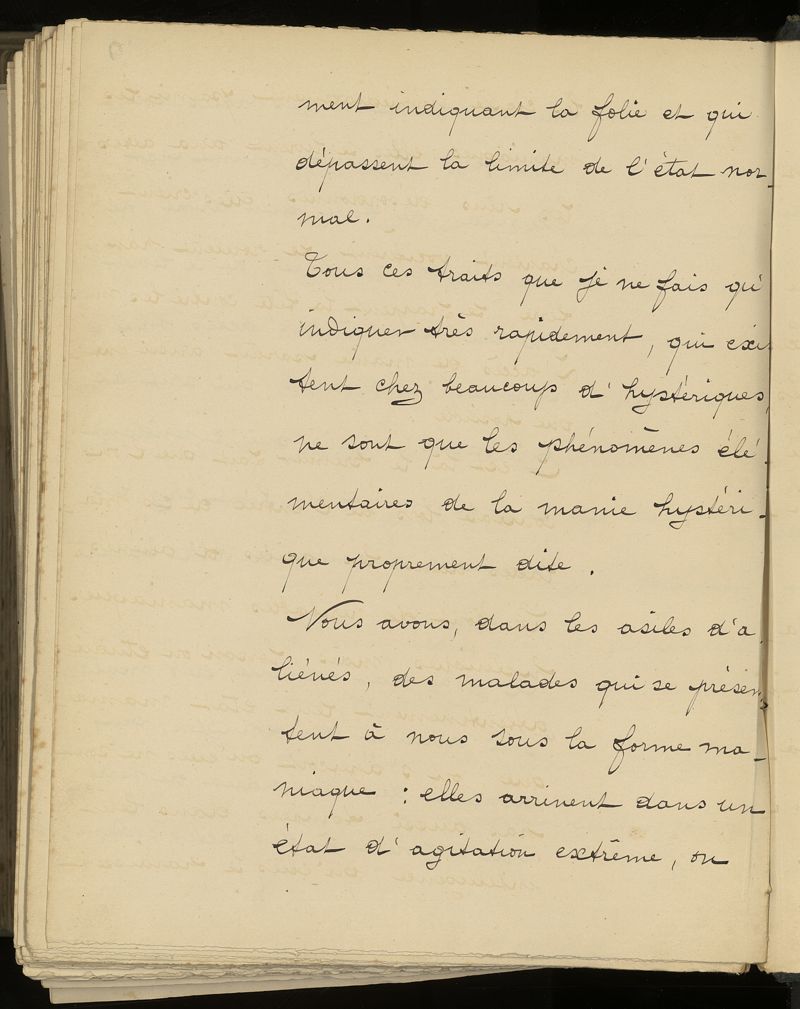 ment indiquant la folie et qui
dépassent la limite de l'état nor-
mal.
Tous ces traits que je ne fais qu'
indiquer très rapidement, qui exis
tent chez beaucoup d'hystériques,
ne sont que les phénomènes élé
mentaires de la manie hystéri-
que proprement dite.
Nous avons, dans les asiles d'a
liénés, des malades qui se présen
tent à nous sous la forme ma-
niaque : elles arrivent dans un
état d'agitation extrême, on